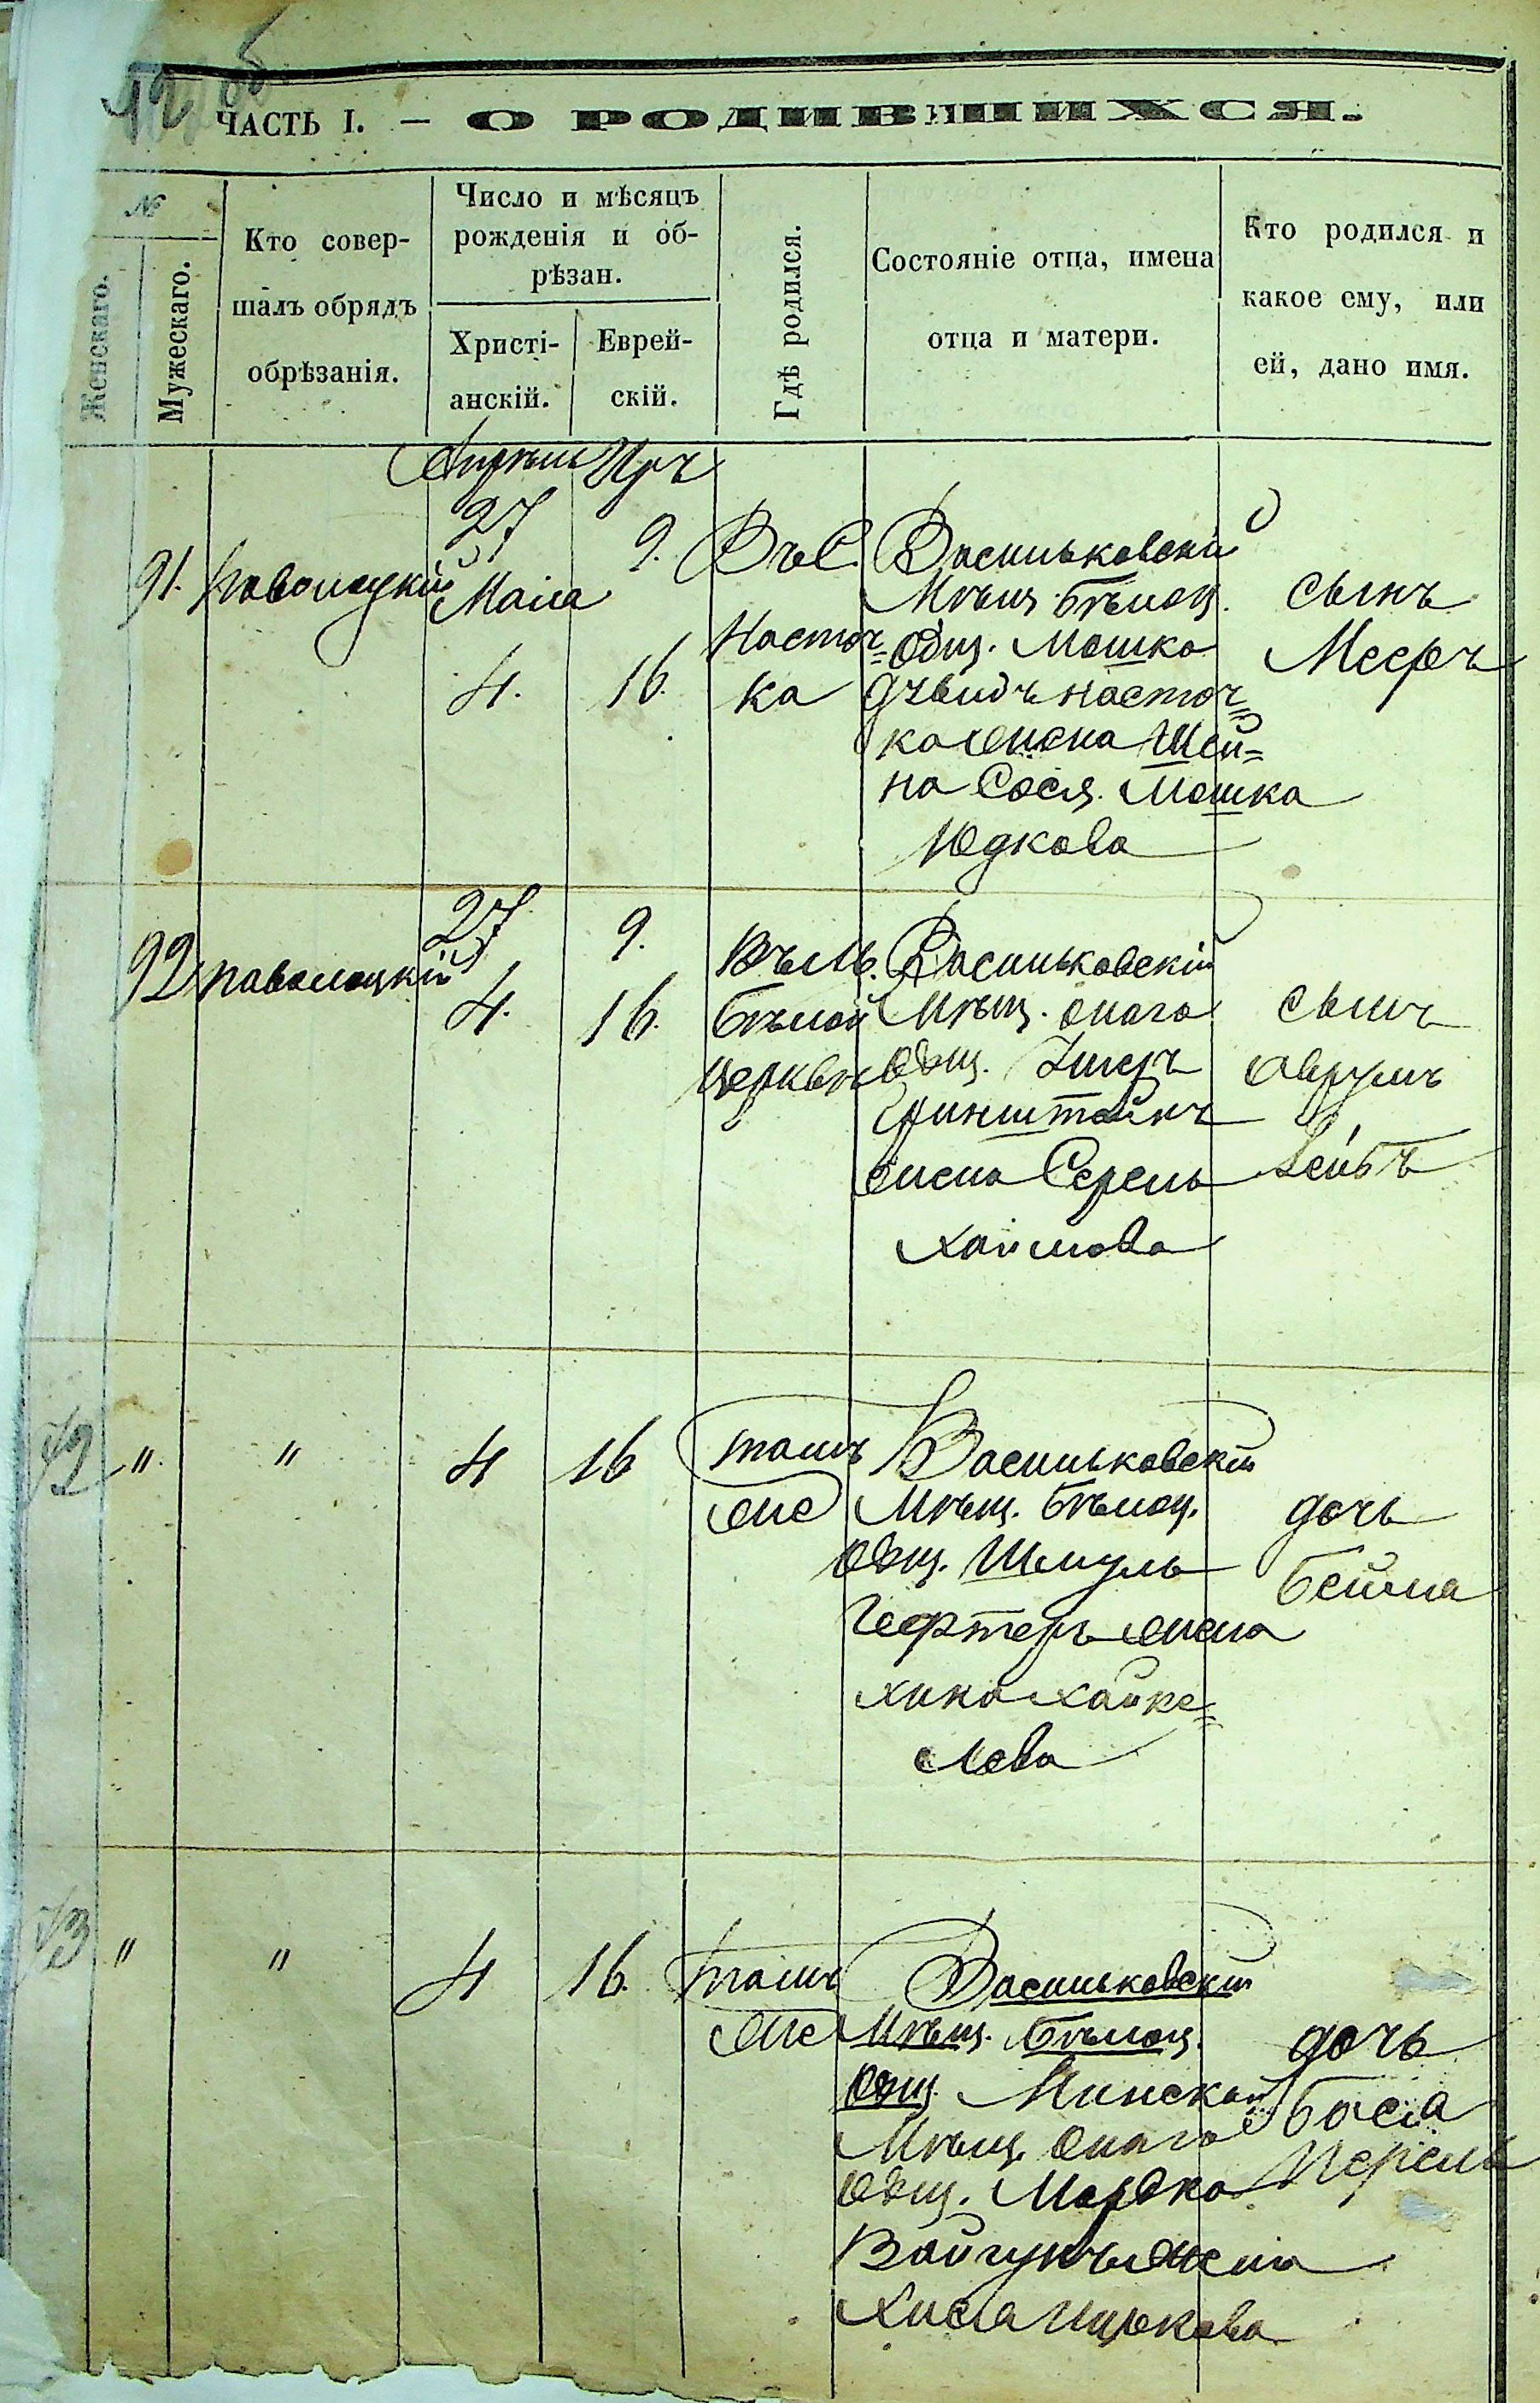 12 об
ЧАСТЬ I. — О РОДИВШИХСЯ.
№
Женскаго.
Мужескаго.
Кто совер-
шалъ обрядъ
обрѣзанія.
Число и мѣсяцъ
рожденія и об-
рѣзан.
Христі-
анскій.
Еврей-
скій.
Гдѣ родился.
Состояніе отца, имена
отца и матери.
Кто родился и
какое ему, или
ей, дано имя.
Апрѣль Иръ
91.
Паволоцкій
27
Маія
4.
9.
16.
Въ С.
Насточ=
ка
Васильковскій
Мѣщ. Бѣлоц.
Общ. Мошко
Дувидъ Насточ=
ка жена Шей=
на Сося Мошка
Юдкова
сынъ
Мееръ
92
Паволоцкій
27
4.
9.
16.
Въ м.
Бѣлой
Церкви
Васильковскій
Мѣщ. онаго
Общ.
Гринштейнъ
жена Серель
Хаимова
сынъ
Аврумъ
Лейбъ
72
"
"
4
16
тамъ
же
Васильковскій
Мѣщ. Бѣлоц.
Общ. Шмуль
Гефтеръ жена
Хина Хайке=
лева
дочь
Бейла
73
"
"
4
16.
тамъ
же
Васильковскій
Мѣщ. Бѣлоц.
Общ. Минской
Мѣщ. онаго
Общ. Мордко
жена
дочь
Бася
Перель